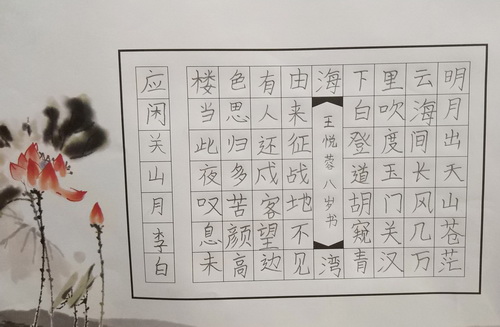 明月出天山苍茫
云海间长风几万
里吹度玉门关汉
下白登道胡窥青
海湾
王悦蓉八岁书
由来征战地不见
有人还戍客望边
色思归多苦颜高
楼当此夜叹息未
应闲关山月李白